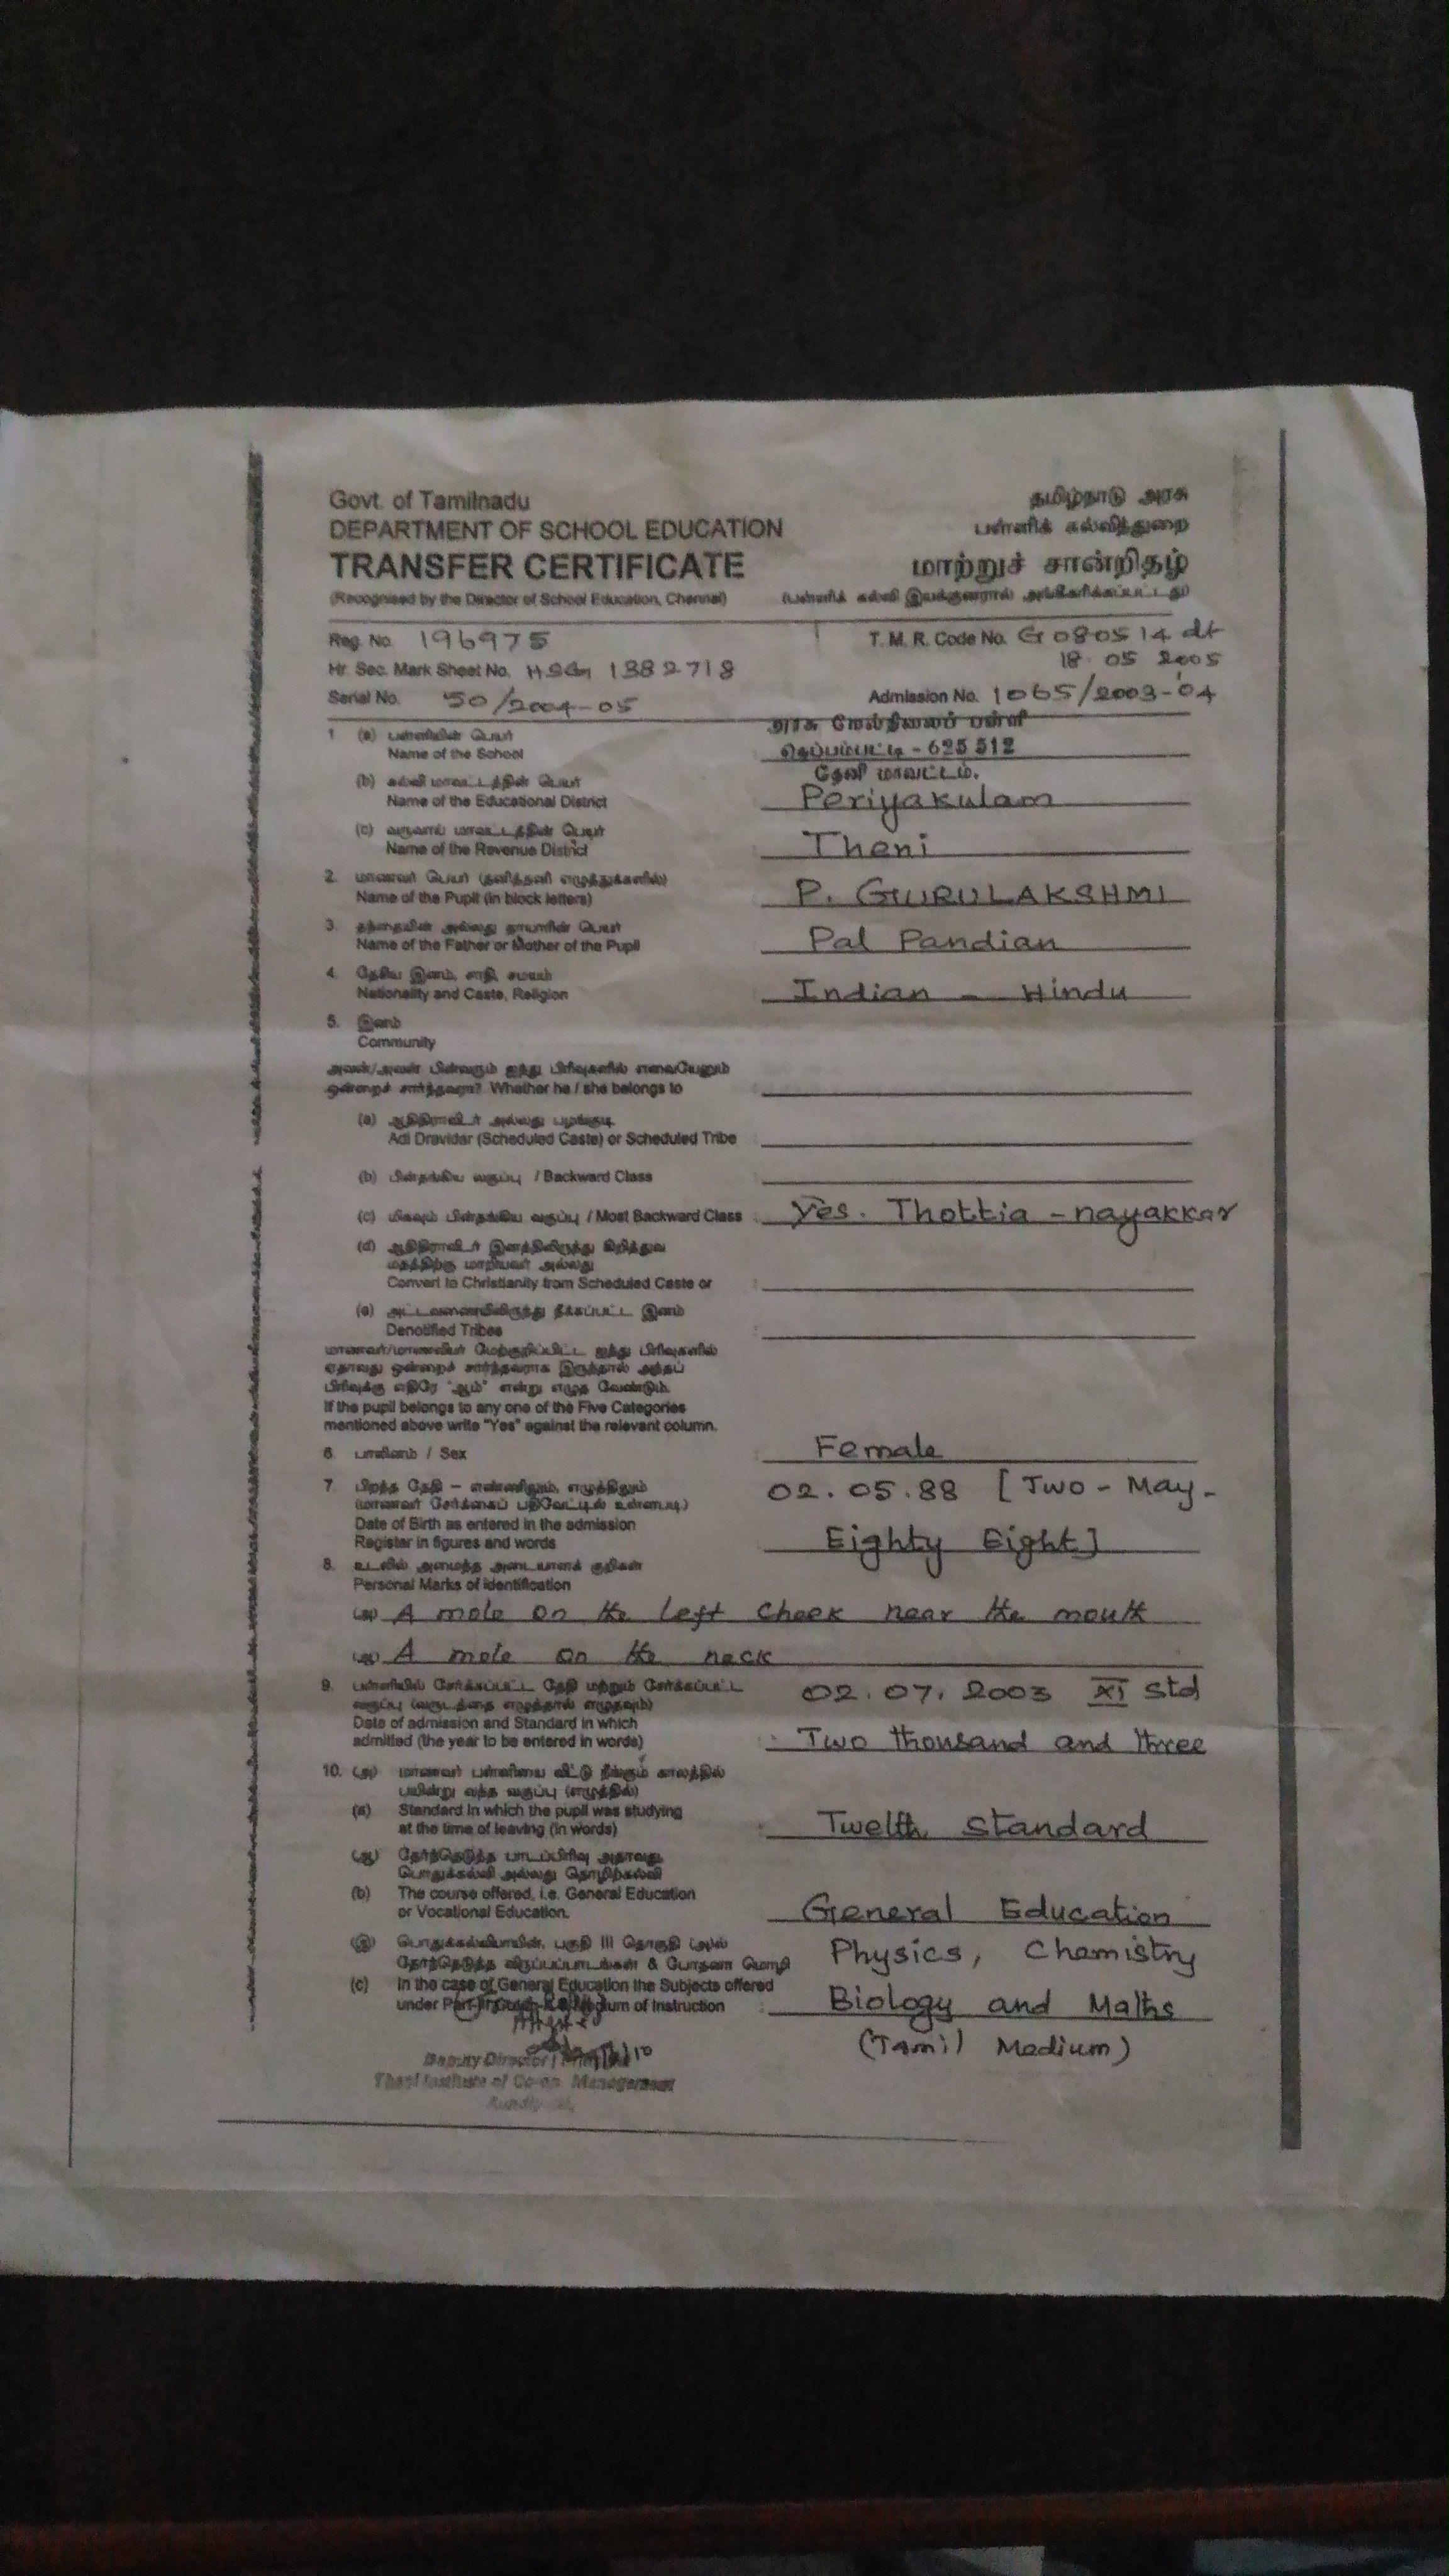 Govt. of Tamilnadu
தமிழ்நாடு அரசு
DEPARTMENT OF SCHOOL EDUCATION
பள்ளிக் கல்வித்துறை
TRANSFER CERTIFICATE
மாற்றுச் சான்றிதழ்
(Recognised by the Director of School Education, Chennai)
(பள்ளிக் கல்வி இயக்குனரால் அங்கீகரிக்கப்பட்டது)
Reg. No. 196975
T. M. R. Code No. G 080514 dt
18.05 2005
Hr. Sec. Mark Sheet No. HSG 1382718
Serial No. 50/2004-05
Admission No. 1065/2003-'04
1 (a) பள்ளியின் பெயர்
Name of the School
அரசு மேல்நிலைப் பள்ளி
தெப்பம்பட்டி - 625 512
தேனி மாவட்டம்.
(b) கல்வி மாவட்டத்தின் பெயர்
Name of the Educational District
Periyakulam
(c) வருவாய் மாவட்டத்தின் பெயர்
Name of the Revenue District
Theni
2. மாணவர் பெயர் (தனித்தனி எழுத்துக்களில்)
Name of the Pupil (in block letters)
P. GURULAKSHMI
3. தந்தையின் அல்லது தாயாரின் பெயர்
Name of the Father or Mother of the Pupil
Pal Pandian
4. தேசிய இனம், சாதி, சமயம்
Nationality and Caste, Religion
Indian - Hindu
5. இனம்
Community
அவன்/அவள் பின்வரும் ஐந்து பிரிவுகளில் எவையேனும்
ஒன்றைச் சார்ந்தவரா? Whether he / she belongs to
(a) ஆதிதிராவிடர் அல்லது பழங்குடி
Adi Dravidar (Scheduled Caste) or Scheduled Tribe
(b) பின்தங்கிய வகுப்பு / Backward Class
(c) மிகவும் பின்தங்கிய வகுப்பு / Most Backward Class : Yes. Thottia - nayakkar
(d) ஆதிதிராவிடர் இனத்திலிருந்து கிறித்துவ
மதத்திற்கு மாறியவர் அல்லது
Convert to Christianity from Scheduled Caste or
(e) அட்டவணையிலிருந்து நீக்கப்பட்ட இனம்
Denotified Tribes
மாணவர்/மாணவியர் மேற்குறிப்பிட்ட ஐந்து பிரிவுகளில்
ஏதாவது ஒன்றைச் சார்ந்தவராக இருந்தால் அந்தப்
பிரிவுக்கு எதிரே "ஆம்" என்று எழுத வேண்டும்.
If the pupil belongs to any one of the Five Categories
mentioned above write "Yes" against the relevant column.
6. பாலினம் / Sex : Female
7. பிறந்த தேதி – எண்ணிலும், எழுத்திலும்
(மாணவர் சேர்க்கைப் பதிவேட்டில் உள்ளபடி)
Date of Birth as entered in the admission
Register in figures and words
02.05.88 [Two - May -
Eighty Eight]
8. உடலில் அமைந்த அடையாளக் குறிகள்
Personal Marks of identification
(அ) A mole on the left cheek near the mouth
(ஆ) A mole on the neck
9. பள்ளியில் சேர்க்கப்பட்ட தேதி மற்றும் சேர்க்கப்பட்ட
வகுப்பு (வருடத்தை எழுத்தால் எழுதவும்)
Date of admission and Standard in which
admitted (the year to be entered in words)
02.07.2003 XI std
Two thousand and three
10. (அ) மாணவர் பள்ளியை விட்டு நீங்கும் காலத்தில்
பயின்று வந்த வகுப்பு (எழுத்தில்)
(a) Standard in which the pupil was studying
at the time of leaving (in words)
Twelth Standard
(ஆ) தேர்ந்தெடுத்த பாடப்பிரிவு அதாவது
பொதுக்கல்வி அல்லது தொழிற்கல்வி
(b) The course offered, i.e. General Education
or Vocational Education.
General Education
(இ) பொதுக்கல்வியாயின், பகுதி III தொகுதி (அ)ல்
தேர்ந்தெடுத்த விருப்பப்பாடங்கள் & போதனா மொழி
(c) In the case of General Education the Subjects offered
under Medium of Instruction
Physics, Chemistry
Biology and Maths
(Tamil Medium)
Deputy Director
Theni Institute of Co-op. Management